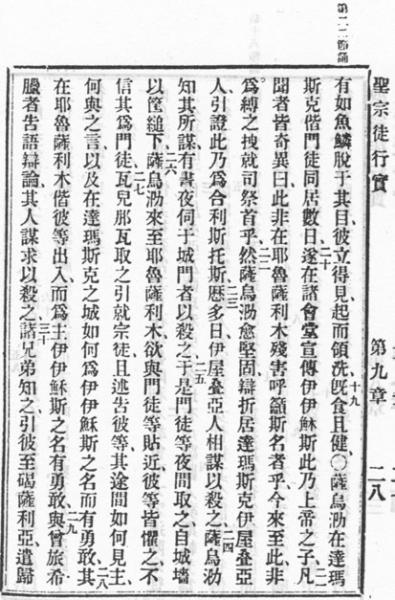 聖宗徒行實 第九章 二八
有如魚鱗脫于其目、彼立得見、起而領洗、旣食且健、〇十九薩烏泐在達瑪
斯克偕門徒同居數日、二十遂在諸會堂宣傳伊伊穌斯此乃上帝之子、二一凡
聞者皆奇異曰、此非在耶魯薩利木殘害呼籲斯名者乎、今來至此非
爲縛之拽就司祭首乎、二二然薩烏泐愈堅固、辯折居達瑪斯克伊屋叠亞
人、引證此乃爲合利斯托斯、二三歷多日、伊屋叠亞人相謀以殺之、二四薩烏泐
知其所謀、有晝夜伺于城門者以殺之、二五于是門徒等夜間取之、自城墻
以筐縋下、二六薩烏泐來至耶魯薩利木、欲與門徒等貼近、彼等皆懼之、不
信其爲門徒、二七瓦兒那瓦取之引就宗徒、且述告彼等其途間如何見主、
何與之言、以及在達瑪斯克之城如何爲伊伊穌斯之名而有勇敢、二八其
在耶魯薩利木偕彼等出入、而爲主伊伊穌斯之名有勇敢、二九與曾旅希
臘者告語辯論、其人謀求以殺之、三十諸兄弟知之、引彼至碣薩利亞、遣歸